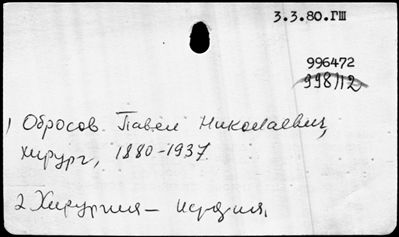 3.3.80.ГШ
996472
998/12
1 Обросов Павел Николаевич,
хирург, 1880-1937.
2 Хирургия — персоналия